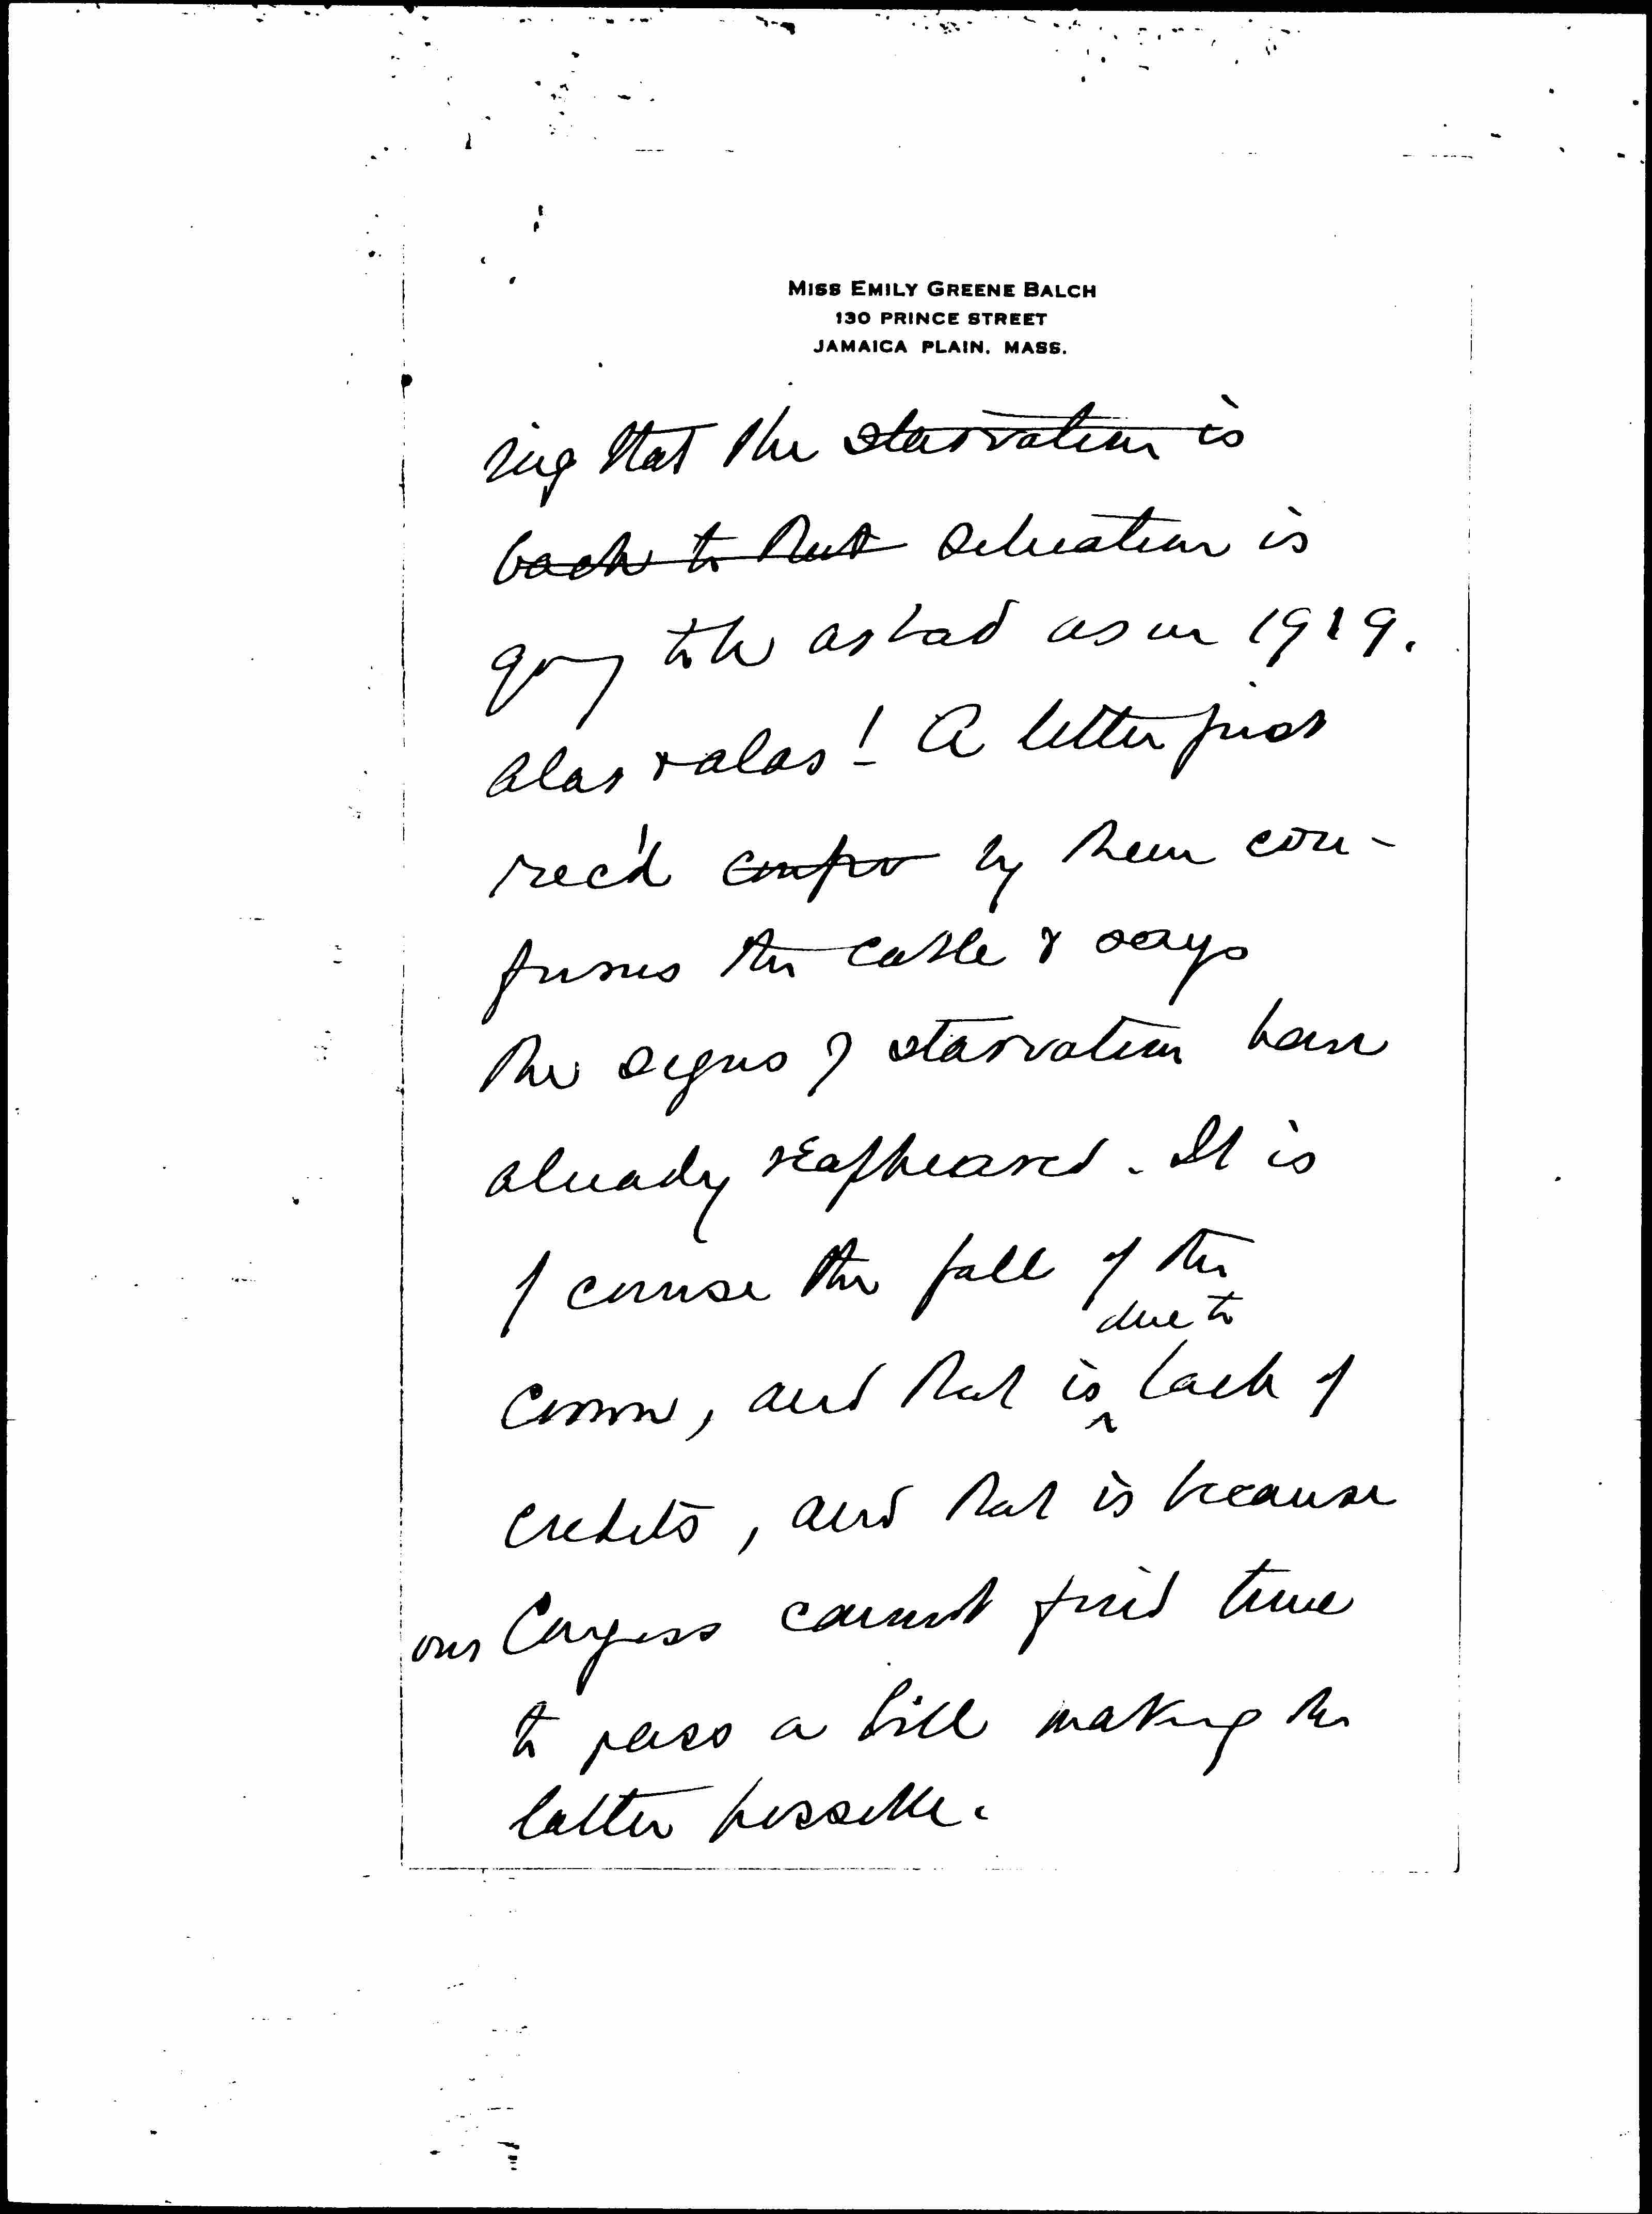 MISS EMILY GREENE BALCH
130 PRINCE STREET
JAMAICA PLAIN. MASS.
ing that the starvation is
back to that situation is
going to be as bad as in 1919.
Alas & alas! A letter just
rec'd confir by them con-
firms the cable & says
the signs of starvation have
already reappeared. It is
of course the fall of the
due to
crown, and that is ^ lack of
credits, and that is because
our Congress cannot find time
to pass a bill making the
latter possible.